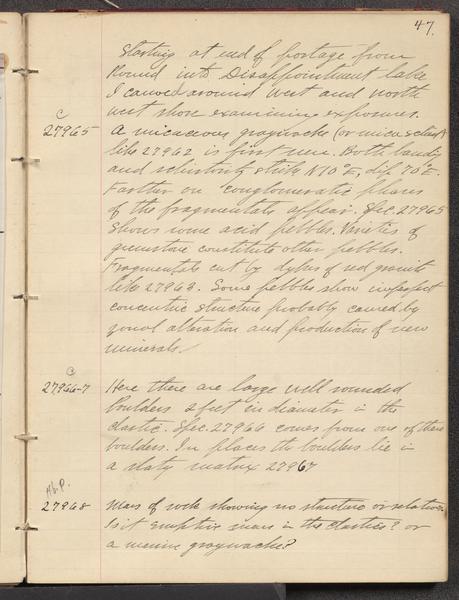 47.
Starting at end of portage from
Round into Disappointment Lake
I canoed around west and north
west shore examining exposures.
C
27965 A micaceous graywacke (or mica schist)
like 27962 is first seen. Both banding
and schistosity strike N70°E, dip 70°E.
Farther on conglomeratic phases
of the fragmentals appear. Spec. 27965
shows some acid pebbles. Varieties of
greenstone constitute other pebbles.
Fragmentals cut by dykes of red granite
like 27963. Some pebbles show imperfect
concentric structure probably caused by
zonal alteration and production of new
minerals.
C
27966-7 Here there are large well rounded
boulders 2 feet in diameter in the
clastic. Spec. 27966 comes from one of these
boulders. In places the boulders lie in
a slaty matrix 27967
27968 Mass of rock showing no structure or relations.
Is it eruptive mass in the clastics? or
a massive graywacke?